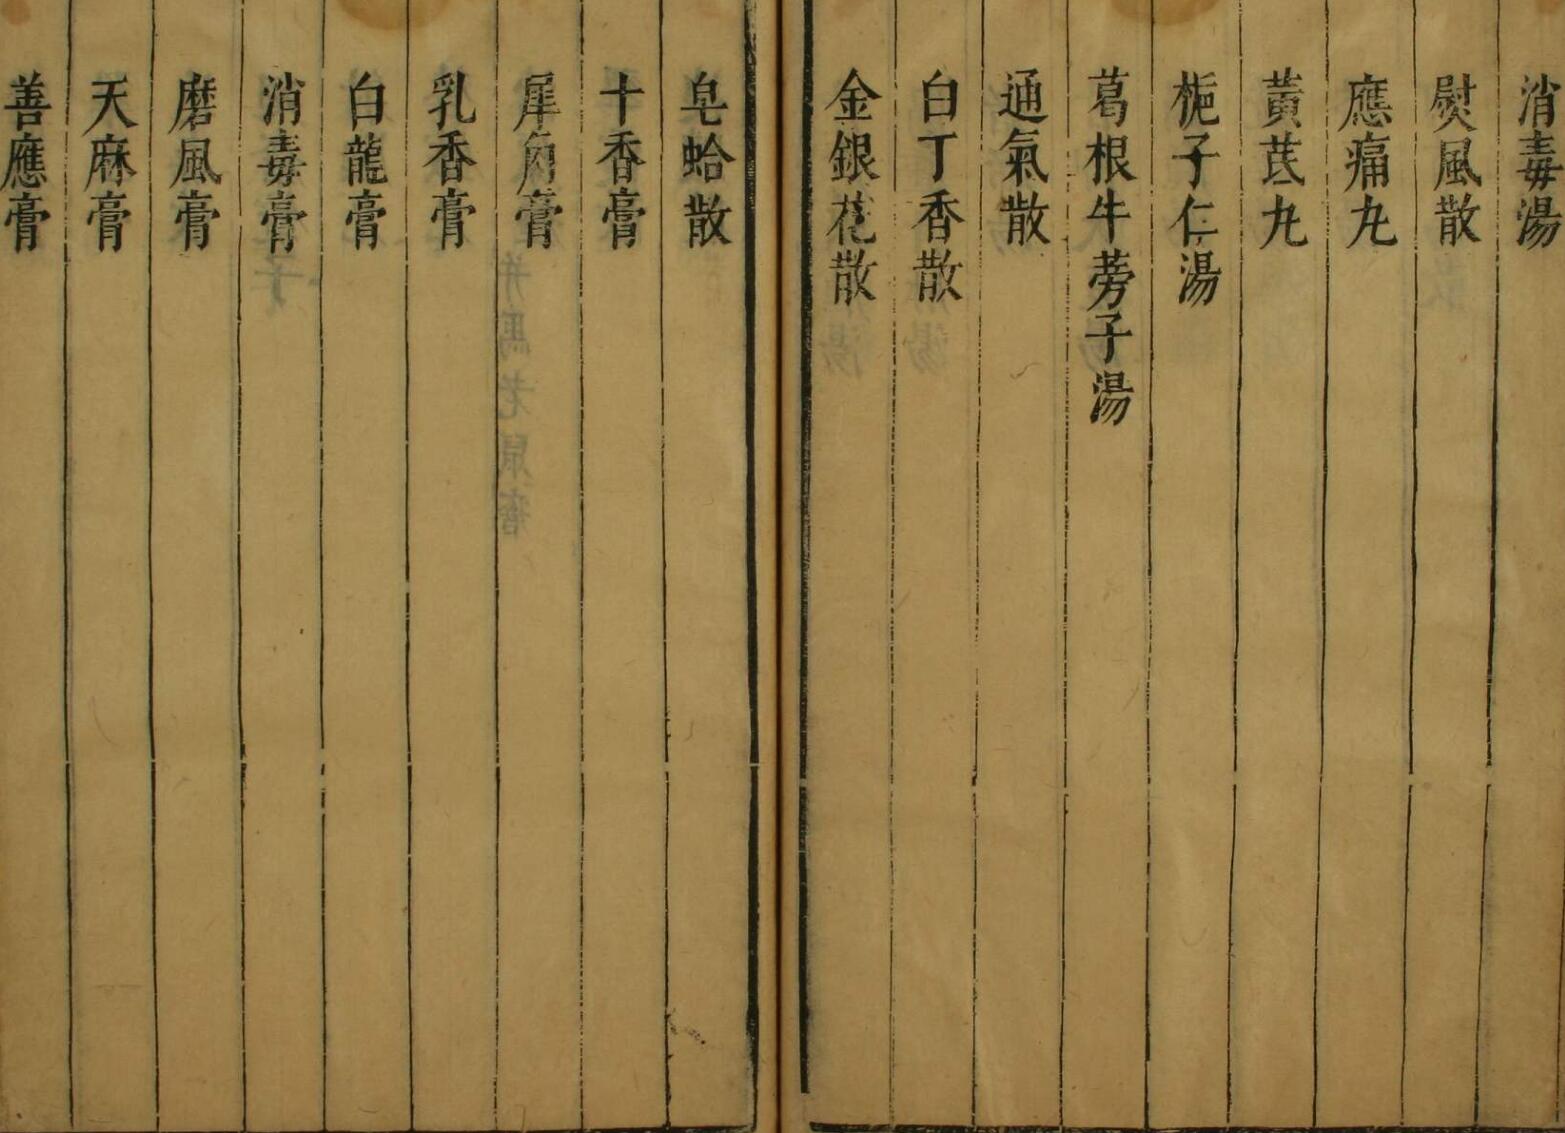 消毒湯
熨風散
應痛丸
黃芪丸
梔子仁湯
葛根牛蒡子湯
通氣散
白丁香散
金銀花散
皂蛤散
十香膏
犀角膏
乳香膏
白龍膏
消毒膏
磨風膏
天麻膏
善應膏